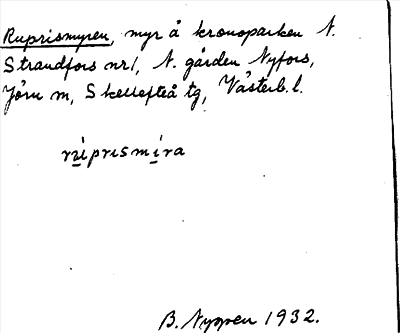 Ruprismyren, myr å kronoparken N.
Strandfors nr 1, N. gården Nyfors,
Jörn m, Skellefteå tg, Västerb. l.
rúprismíra
B. Nyren 1932.